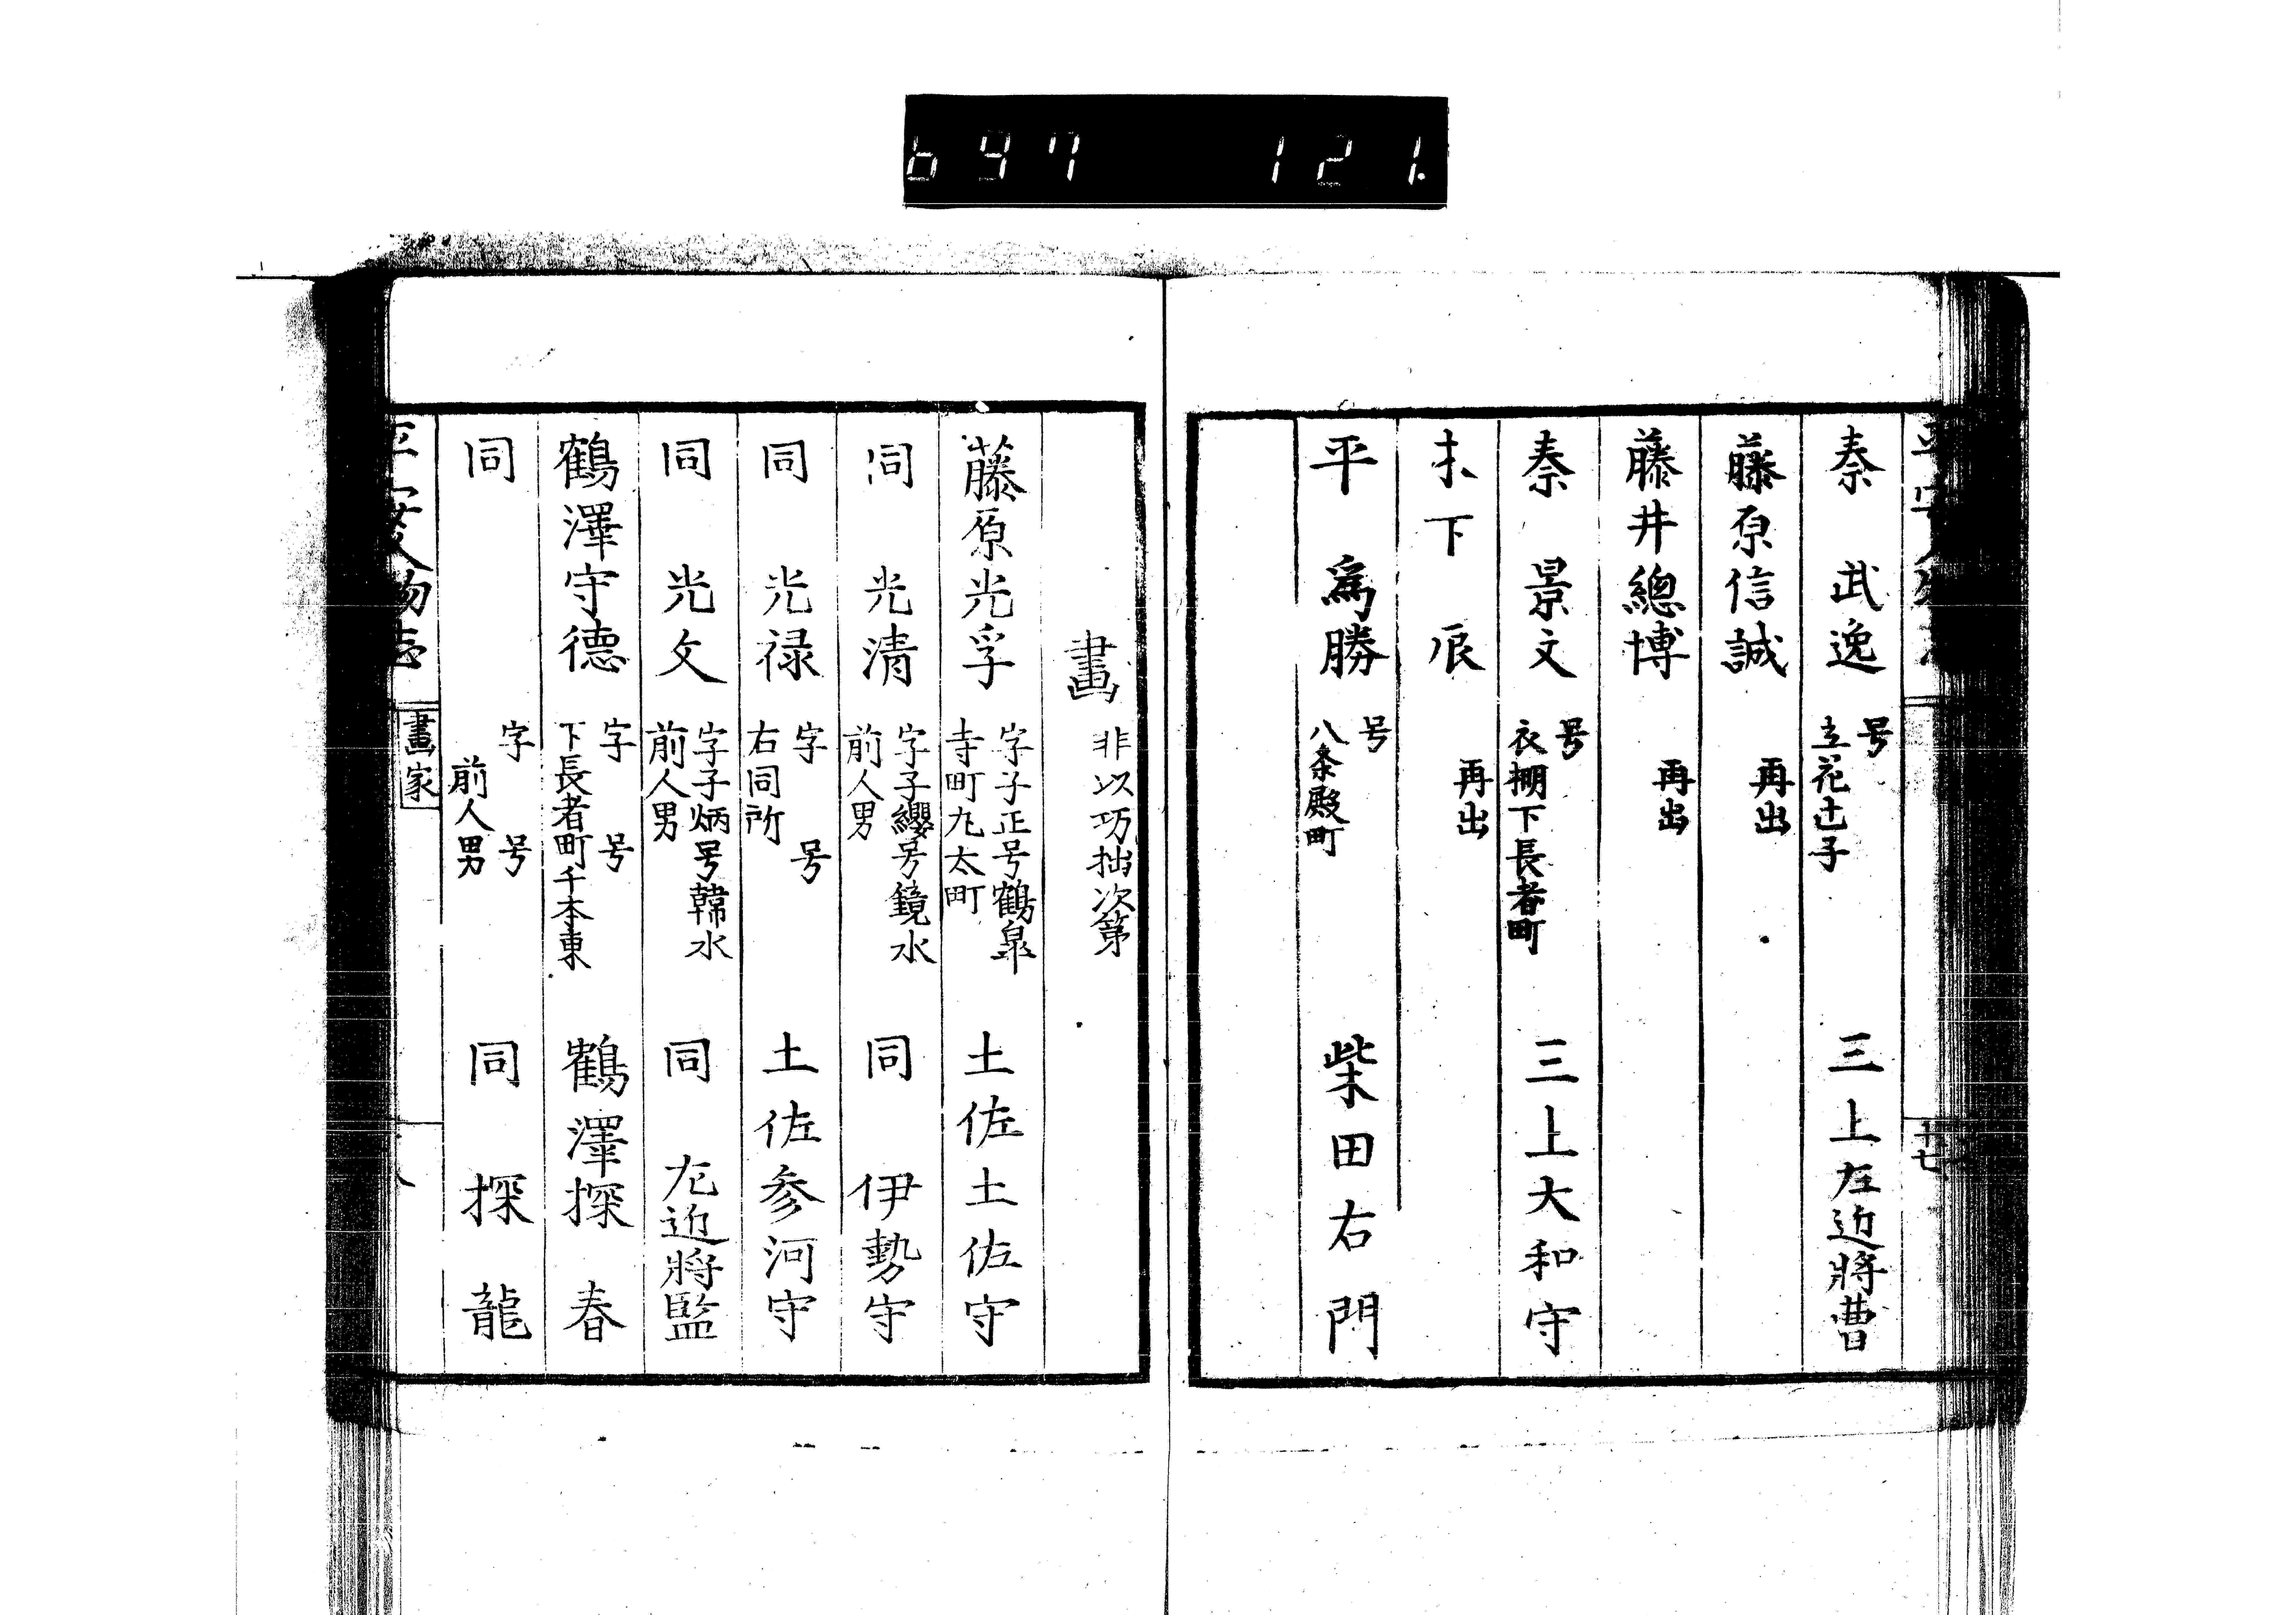 697 121.
十七
秦 武逸 号 立花辻子 三上左近將曹
藤原信誠 再出
藤井總博 再出
秦 景文 号 衣棚下長者町 三上大和守
木下 𠂢 再出
平 爲勝 号 八条殿町 柴田右門
畫 非以巧拙次第
藤原光孚 字子正号鶴皐 寺町丸太町 土佐土佐守
同 光清 字子纓号鏡水 前人男 同 伊勢守
同 光禄 字 号 右同所 土佐参河守
同 光文 字子炳号韓水 前人男 同 左近將監
鶴澤守德 字 号 下長者町千本東 鶴澤探春
同 字 号 前人男 同 探龍
平安人物志 畫家